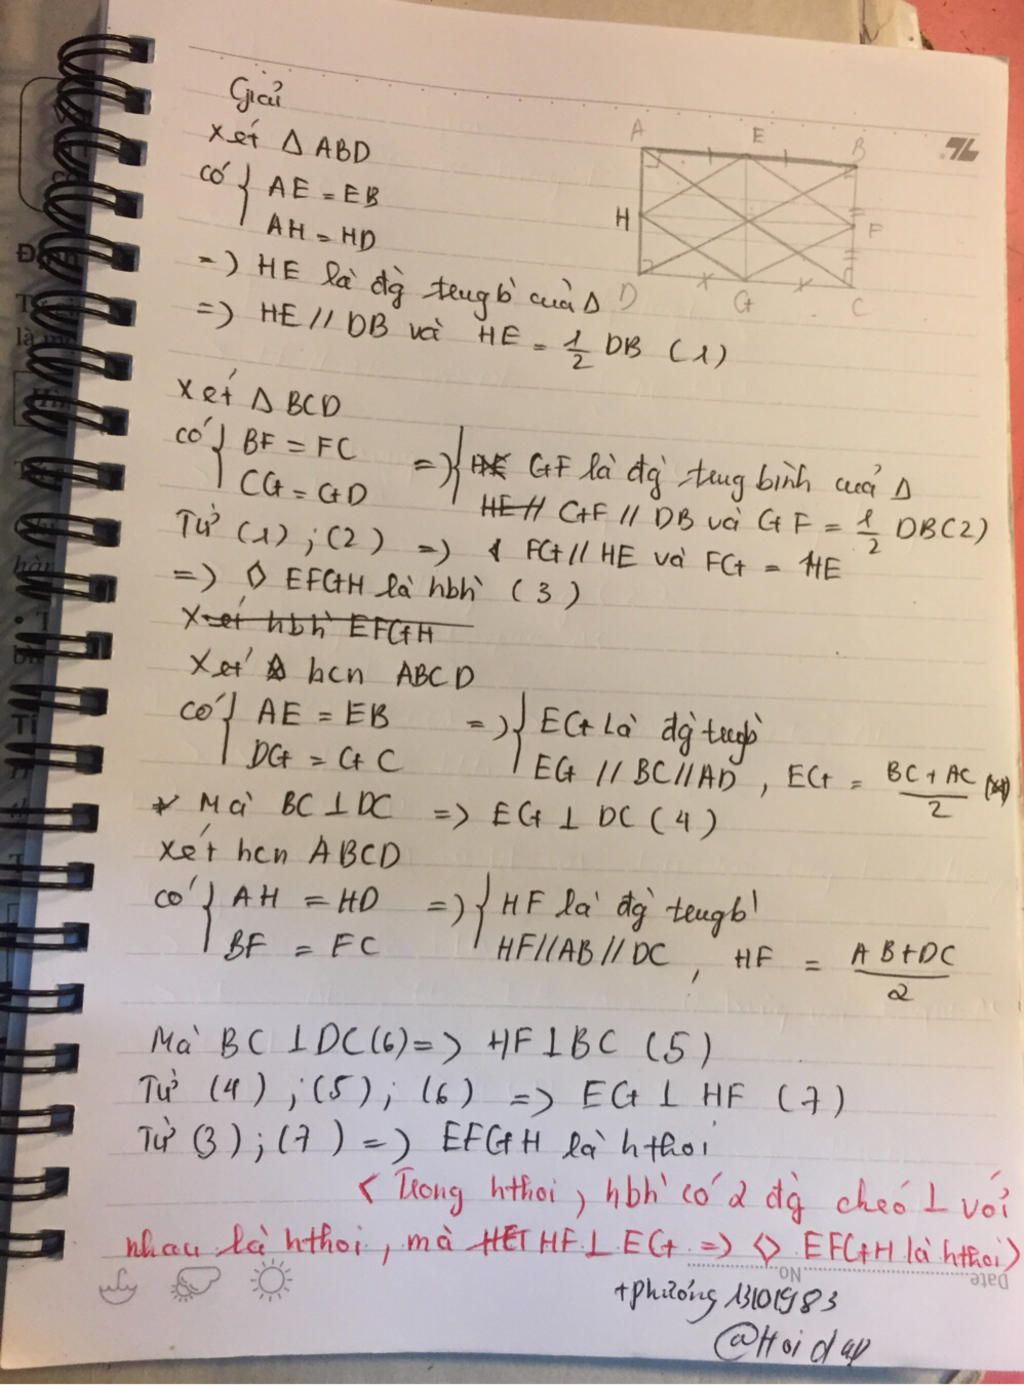 Giải
A E B
H F
D G C
Xét Δ ABD
có { AE = EB
AH = HD
=> HE là đg̀ trugb̀ của Δ
=> HE // DB và HE = 1/2 DB (1)
Xét Δ BCD
có { BF = FC => { GF là đg̀ trung bình của Δ
CG = GD HE // GF // DB và GF = 1/2 DB (2)
Từ (1) ; (2) => FG // HE và FG = HE
=> ◊ EFGH là hbh̀ (3)
Xét hbh̀ EFGH
Xét hcn ABCD
có { AE = EB => { EG là đg̀ trugb̀
DG = GC EG // BC // AD , EG = BC + AC / 2
* Mà BC ⊥ DC => EG ⊥ DC (4)
Xét hcn ABCD
có { AH = HD => { HF là đg̀ trugb̀
BF = FC HF // AB // DC , HF = AB + DC / 2
Mà BC ⊥ DC (6) => HF ⊥ BC (5)
Từ (4) ; (5) ; (6) => EG ⊥ HF (7)
Từ (3) ; (7) => EFGH là hthoi
( Trong hthoi , hbh̀ có 2 đg̀ chéo ⊥ với
nhau là hthoi , mà HF ⊥ EG => ◊ EFGH là hthoi )
No Date
+phương 13101983
@Hoidap